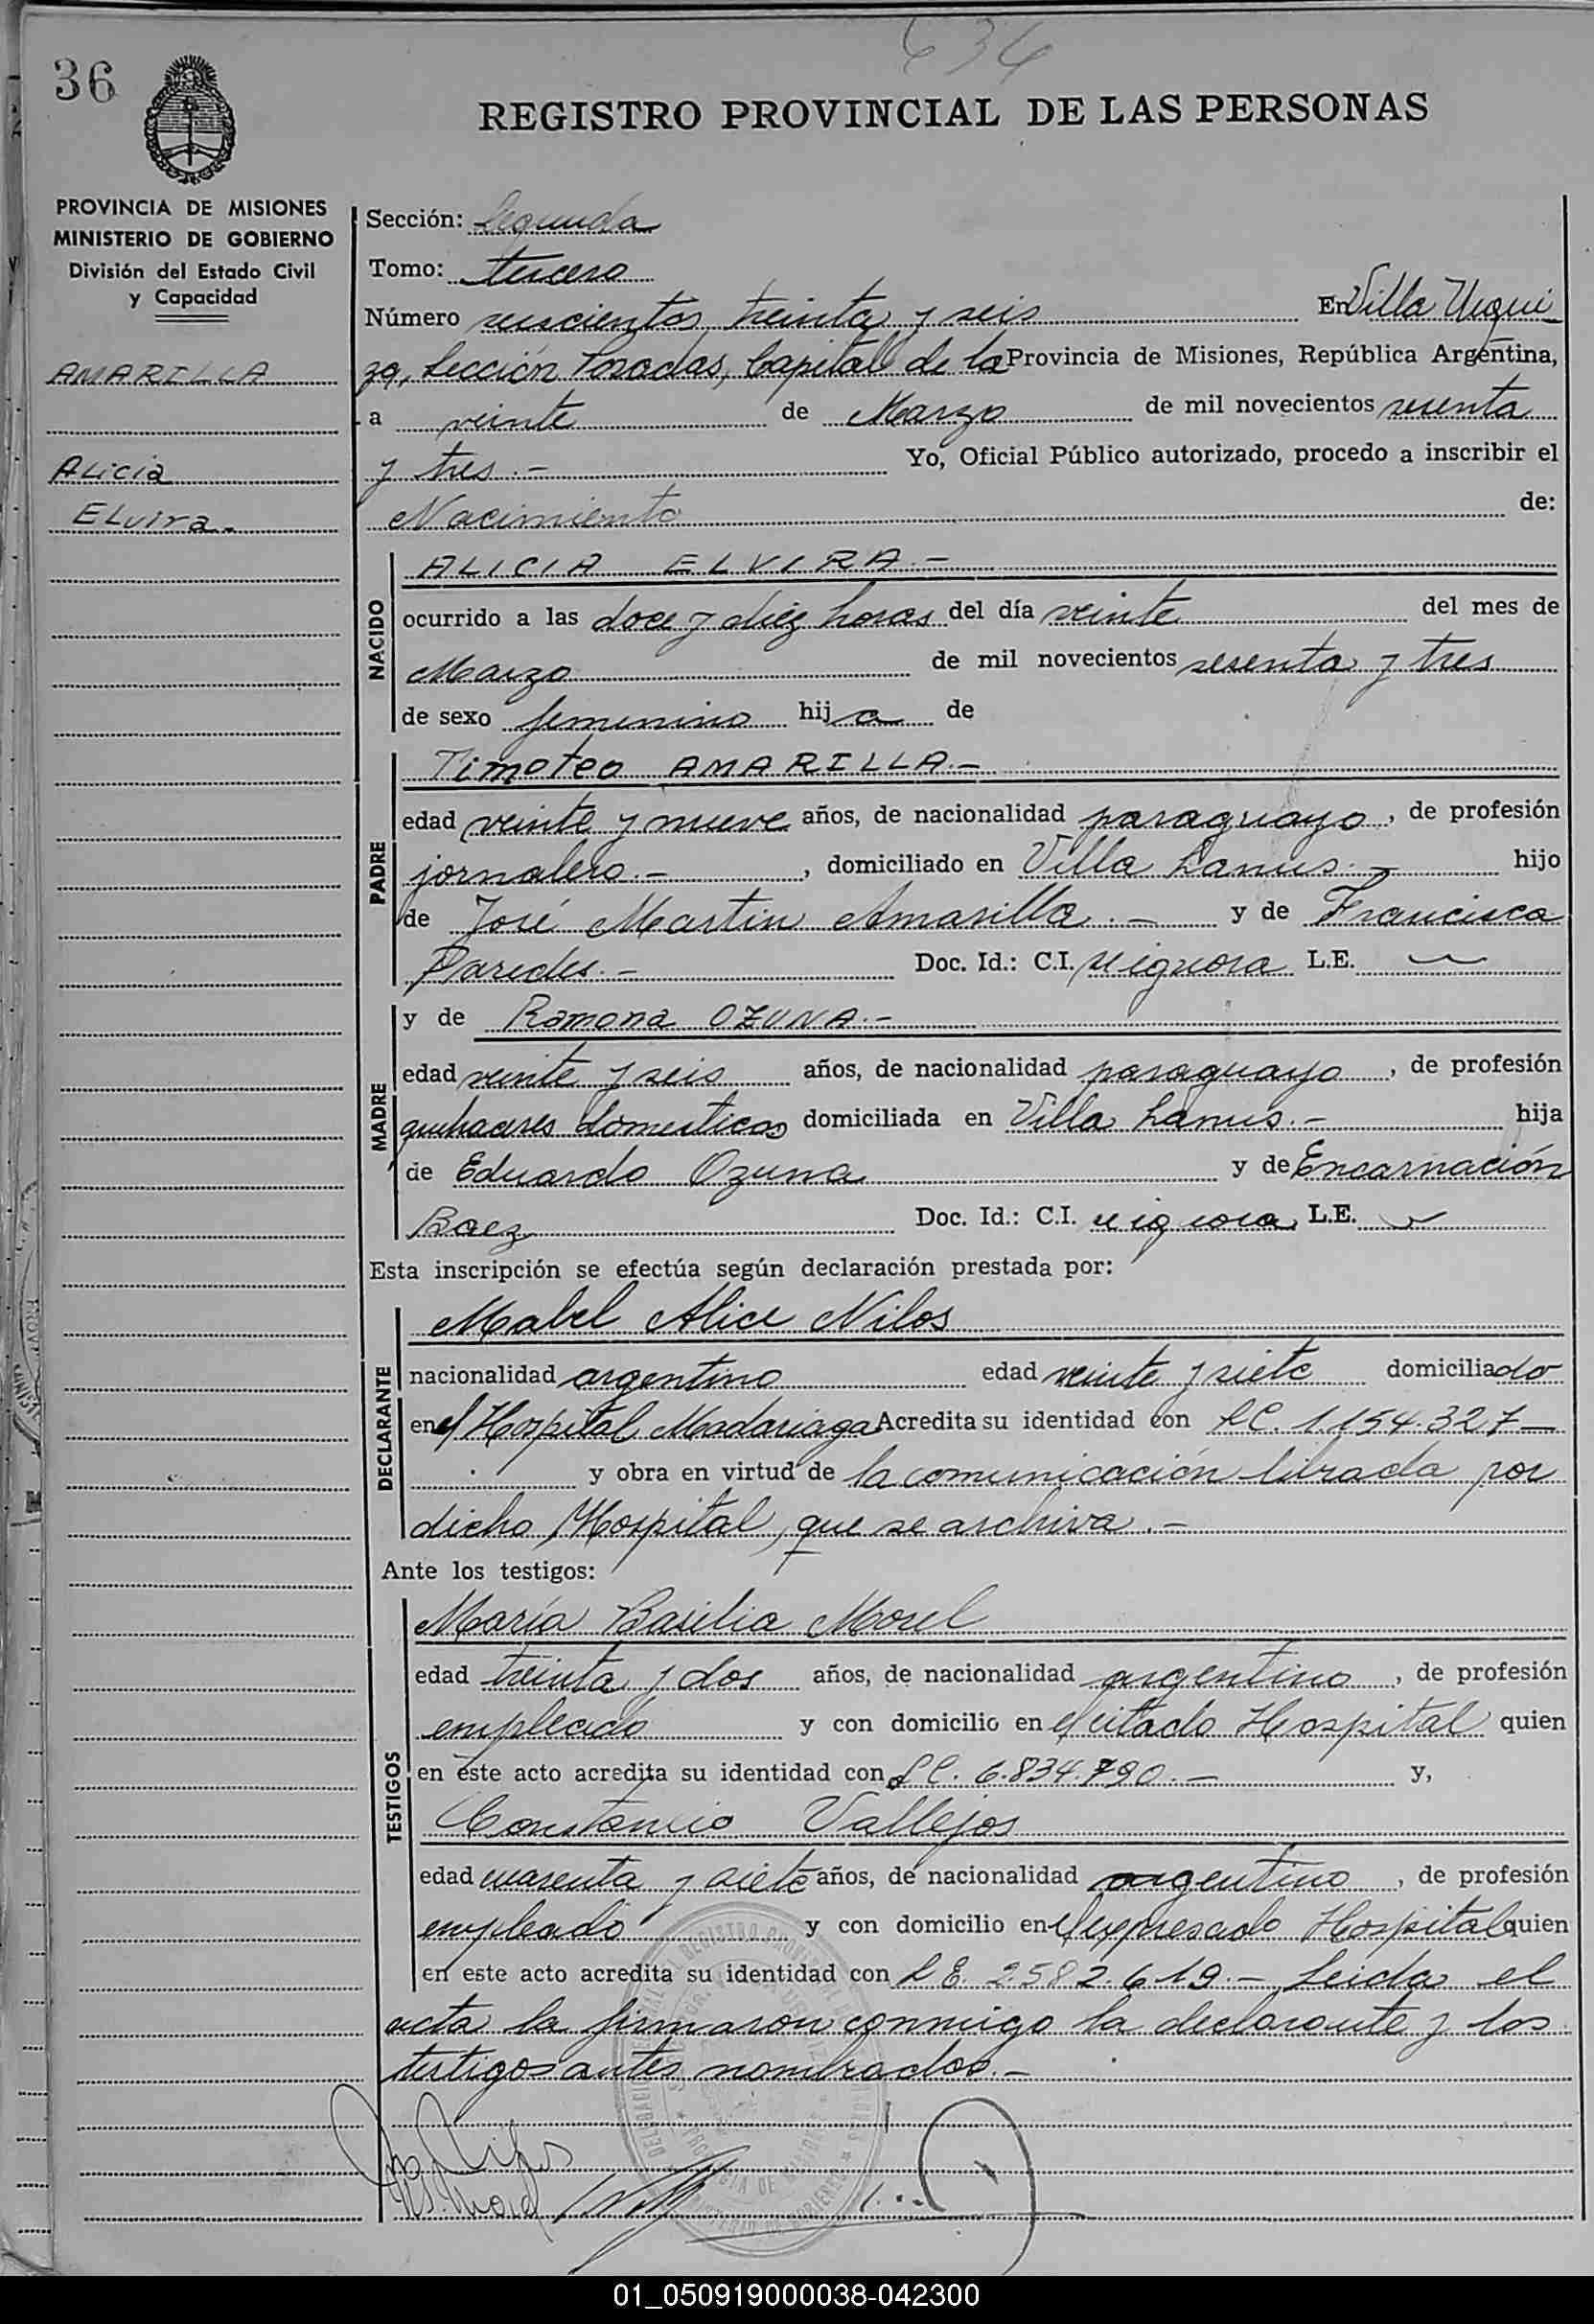 36
636
REGISTRO PROVINCIAL DE LAS PERSONAS
PROVINCIA DE MISIONES
MINISTERIO DE GOBIERNO
División del Estado Civil
y Capacidad
AMARILLA
Alicia
Elvira.-
Sección: Segunda
Tomo: tercero
Número seiscientos treinta y seis En Villa Urqui-
za, Sección Posadas, Capital de la Provincia de Misiones, República Argentina,
a veinte de Marzo de mil novecientos sesenta
y tres.- Yo, Oficial Público autorizado, procedo a inscribir el
Nacimiento de:
NACIDO
ALICIA ELVIRA.-
ocurrido a las doce y diez horas del día veinte del mes de
Marzo de mil novecientos sesenta y tres
de sexo femenino hija de
PADRE
Timoteo AMARILLA.-
edad veinte y nueve años, de nacionalidad paraguayo, de profesión
jornalero.-, domiciliado en Villa Lanus.- hijo
de José Martin Amarilla.- y de Francisca
Paredes.- Doc. Id.: C.I. se ignora L.E.
MADRE
y de Ramona OZUNA.-
edad veinte y seis años, de nacionalidad paraguayo, de profesión
quehaceres domesticos domiciliada en Villa Lanus.- hija
de Eduardo Ozuna y de Encarnación
Baez Doc. Id.: C.I. se ignora, L.E.
Esta inscripción se efectúa según declaración prestada por:
DECLARANTE
Mabel Alice Nilos
nacionalidad argentino edad veinte y siete domiciliado
en el Hospital Madariaga Acredita su identidad con LC. 1.154.327-
y obra en virtud de la comunicación librada por
dicho Hospital, que se archiva.-
Ante los testigos:
TESTIGOS
María Basilia Morel
edad treinta y dos años, de nacionalidad argentino, de profesión
empleado y con domicilio en el citado Hospital quien
en este acto acredita su identidad con LC. 6.834.790.- y,
Constancio Vallejos
edad cuarenta y siete años, de nacionalidad argentino, de profesión
empleado y con domicilio en el expresado Hospital quien
en este acto acredita su identidad con L E. 2.582.619.- Leida el
acta la firmaron conmigo la declarante y los
testigos antes nombrados.-
01_050919000038-042300